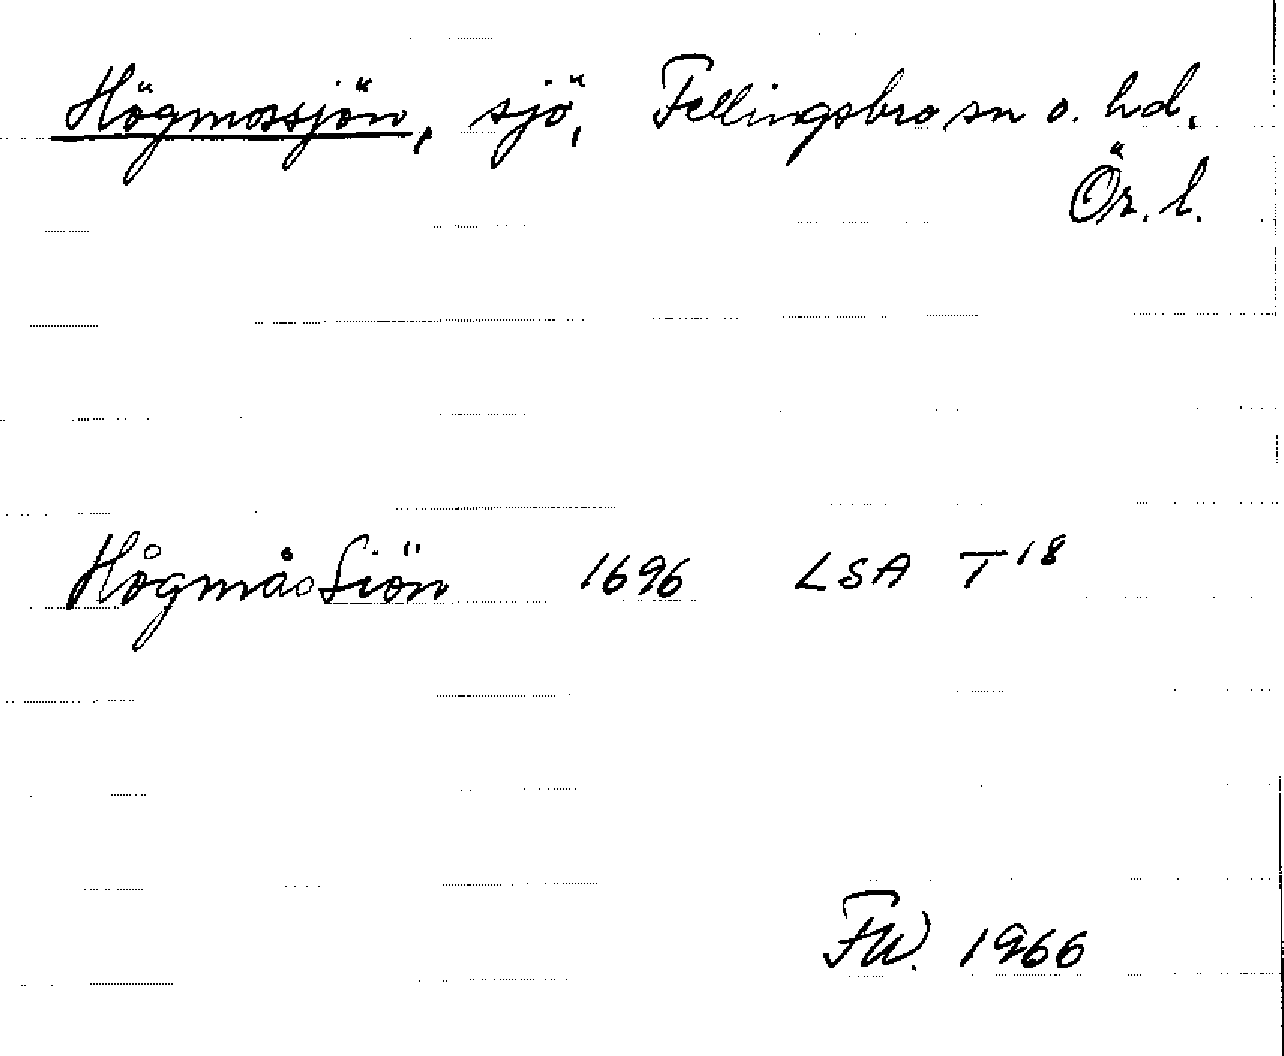 Högmossjön, sjö, Fellingsbro sn o. hd.
Ör. l.
HögmåsSiön 1696 LSA T 18
FW. 1966